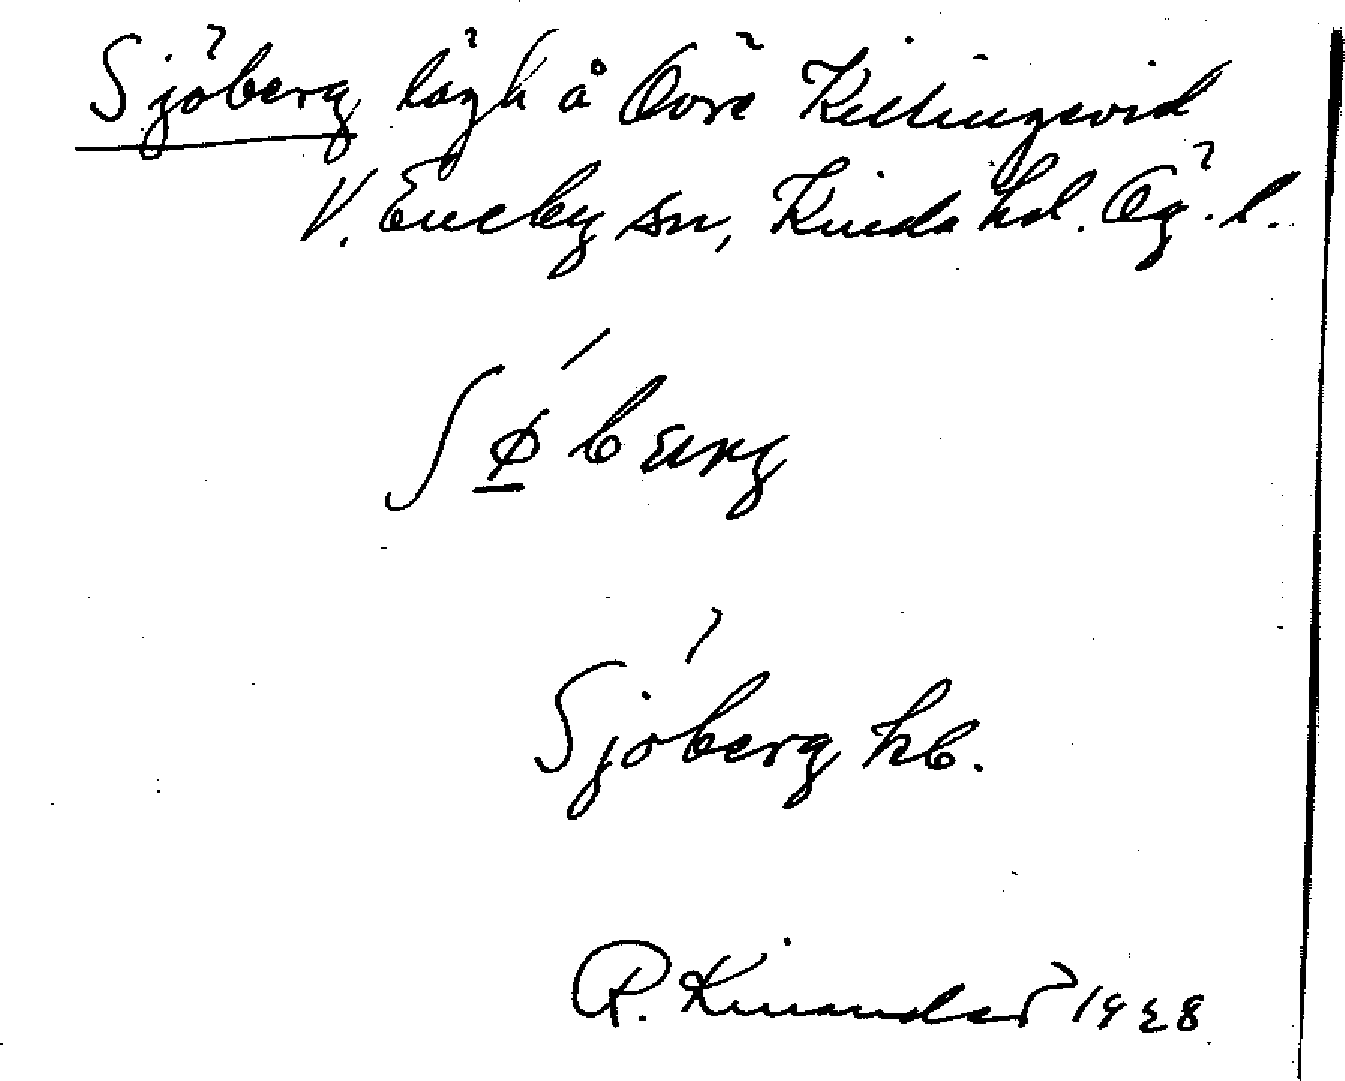 Sjöberg lägh å Övre Kettingsvid
V. Eneby sn, Kinda hd. Ög. l.
ʃø̱´bærg
Sjöberg hb.
R. Kinander 1928